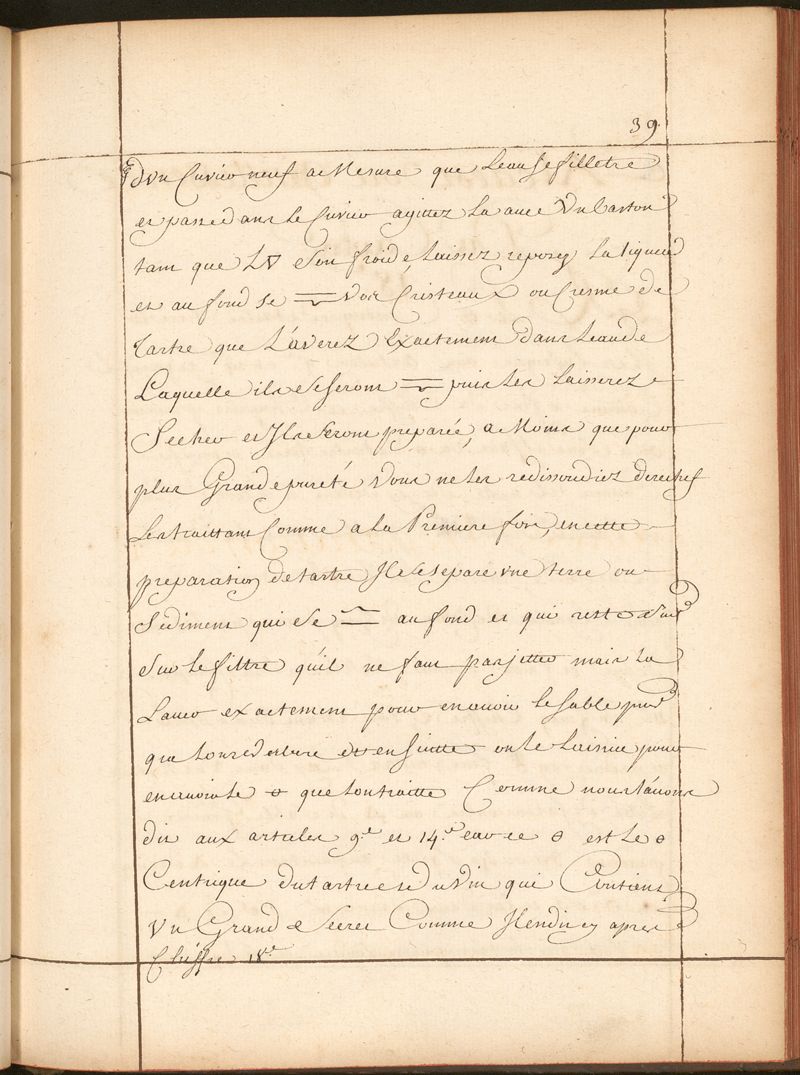 39.
d'un Cuvier neuf a Mesure que Leau Se filletre
et passe dans le Cuvier agittez La avec Un baston
tant que L🜄 Soit froide, Laissez reposer La liqueur
et au fond se vos Cristeaux ou Cresme de
Tartre que L'averez Exactement dans Leau de
Laquelle ils Se Seront puis Les Laisserez
Secher et Ils Seront preparée, a Moins que pour
plus Grande pureté Vous ne Les redissoudiez derechef
Les traittant Comme a La Premiere fois, en cette
preparation de tartre Il Se Separe une terre ou
Sediment qui Se au fond et qui reste
Sur Le filtre quil ne faut pas jetter mais La
Laver exactement pour en avoir Le Sable pur
que Lon redesture et en Suitte on Le Laissive pour
en avoir Le 🜔 que Lon traitte Comme nous L'avons
dit aux articles 9.e et 14.e car ce 🜔 est Le 🜔
Centrique du tartre et du Vin qui Contient
Un Grand Secret Comme Il en dit cy apres
Chiffre 18.e